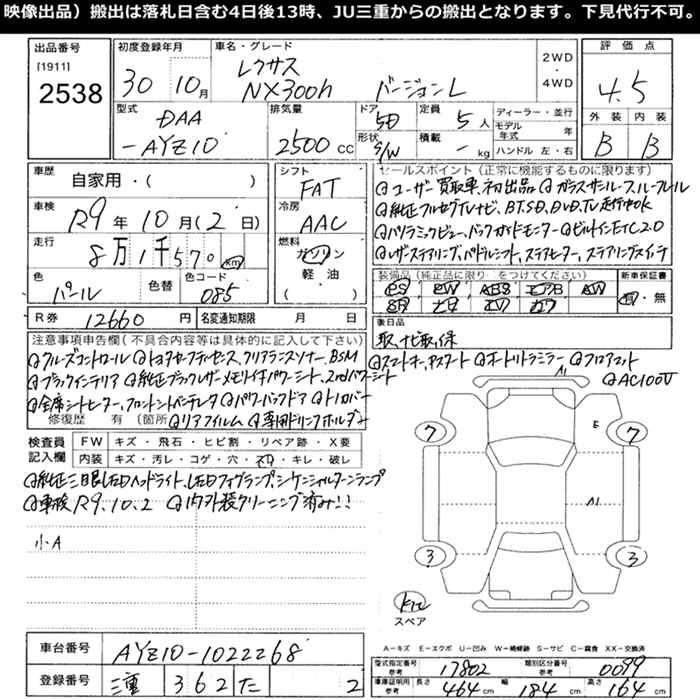 映像出品）搬出は落札日含む4日後13時、JU三重からの搬出となります。下見代行不可。
出品番号
[1911]
2538
初度登録年月
30年 10月
車名・グレード
レクサス
NX300h バージョンL
2WD
・
4WD
評価点
4.5
型式
DAA
-AYZ10
排気量
2500 CC
ドア
5D
形状
S/W
定員
5人
積載
- kg
ディーラー・並行
モデル年式 年
ハンドル 左・右
外装 内装
B B
車歴
自家用・( )
シフト
FAT
車検
R9年10月(2日)
冷房
AAC
走行
8万1千570 km
燃料
ガソリン
軽油
( )
色
パール
色替
色コード
085
R券 12660円
名変通知期限 月 日
セールスポイント（正常に機能するものに限ります）
◎ユーザー買取車、初出品 ◎ガラスサンルーフ、ルーフレール
◎純正フルセグTVナビ、BT.SD.DVD.TV走行中OK
◎パノラミックビュー、バックガイドモニター ◎ビルトインETC2.0
◎レザーステアリング、パドルシフト、ステアヒーター、ステアリングスイッチ
装備品（純正品に限り○をつけてください）
PS PW ABS エアB AW
SR カワ TV ナビ
新車保証書
有・無
後日品
取、ナビ取、保
注意事項申告欄（不具合内容等は具体的に記入して下さい）
◎クルーズコントロール ◎トヨタセーフティセンス、クリアランスソナー、BSM
◎スマートキー、Pスタート ◎オートリトラミラー ◎フロアマット
◎ブラックインテリア ◎純正ブラックレザーメモリ付パワーシート、2ndパワーシート
◎AC100V
◎全席シートヒーター、フロントシートベンチレーター ◎パワーバックドア ◎ドラレコ
修復歴 有（箇所 ◎リアフィルム ◎専用ドリンクホルダー
検査員記入欄
FW キズ・飛石・ヒビ割・リペア跡・X要
内装 キズ・汚レ・コゲ・穴・スリ・キレ・破レ
◎純正三眼LEDヘッドライト、LEDフォグランプ、シーケンシャルターンランプ
◎車検R9.10.2 ◎内外装クリーニング済み!!
小A
A1
E
A1
7
7
3
3
キズ
スペア
A－キズ E－エクボ U－凹み W－補修跡 S－サビ C－腐食 XX－交換済
車台番号 AYZ10-1022268
登録番号 三重 362 た 2
型式指定番号 参考 17802
類別区分番号 参考 0099
車庫証明用 参考 長さ 464cm 幅 184cm 高さ 164cm